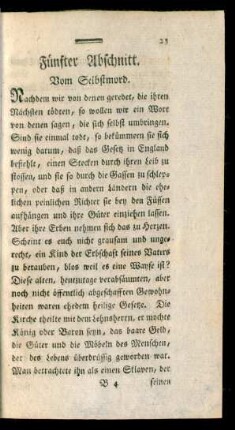 23
Fünfter Abschnitt.
Vom Selbstmord.
Nachdem wir von denen geredet, die ihren
Nächsten tödten, so wollen wir ein Wort
von denen sagen, die sich selbst umbringen.
Sind sie einmal todt, so bekümmern sie sich
wenig darum, daß das Gesetz in England
befiehlt, einen Stecken durch ihren Leib zu
stossen, und sie so durch die Gassen zu schlep-
pen, oder daß in andern Ländern die ehr-
lichen peinlichen Richter sie bey den Füssen
aufhängen und ihre Güter einziehen lassen.
Aber ihre Erben nehmen sich das zu Herzen.
Scheint es euch nicht grausam und unge-
recht, ein Kind der Erbschaft seines Vaters
zu berauben, blos weil es eine Wayse ist?
Diese alten, heutzutage verabsäumten, aber
noch nicht öffentlich abgeschafften Gewohn-
heiten waren ehedem heilige Gesetze. Die
Kirche theilte mit dem Lehnsherrn, er mochte
König oder Baron seyn, das baare Geld,
die Güter und die Möbeln des Menschen,
der des Lebens überdrüssig geworden war.
Man betrachtete ihn als einen Sklaven, der
B 4 seinen